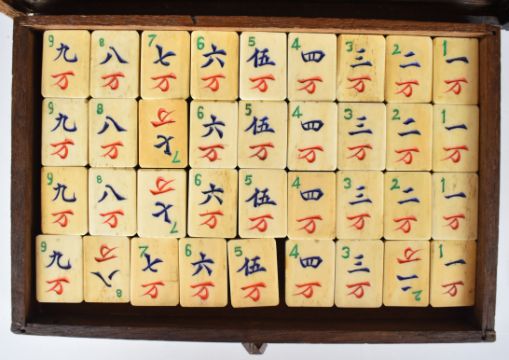 9 8 7 6 5 4 3 2 1
九 八 七 六 伍 四 三 二 一
万 万 万 万 万 万 万 万 万
9 8 7 6 5 4 3 2 1
九 八 七 六 伍 四 三 二 一
万 万 万 万 万 万 万 万 万
9 8 7 6 5 4 3 2 1
九 八 七 六 伍 四 三 二 一
万 万 万 万 万 万 万 万 万
9 8 7 6 5 4 3 2 1
九 八 七 六 伍 四 三 二 一
万 万 万 万 万 万 万 万 万